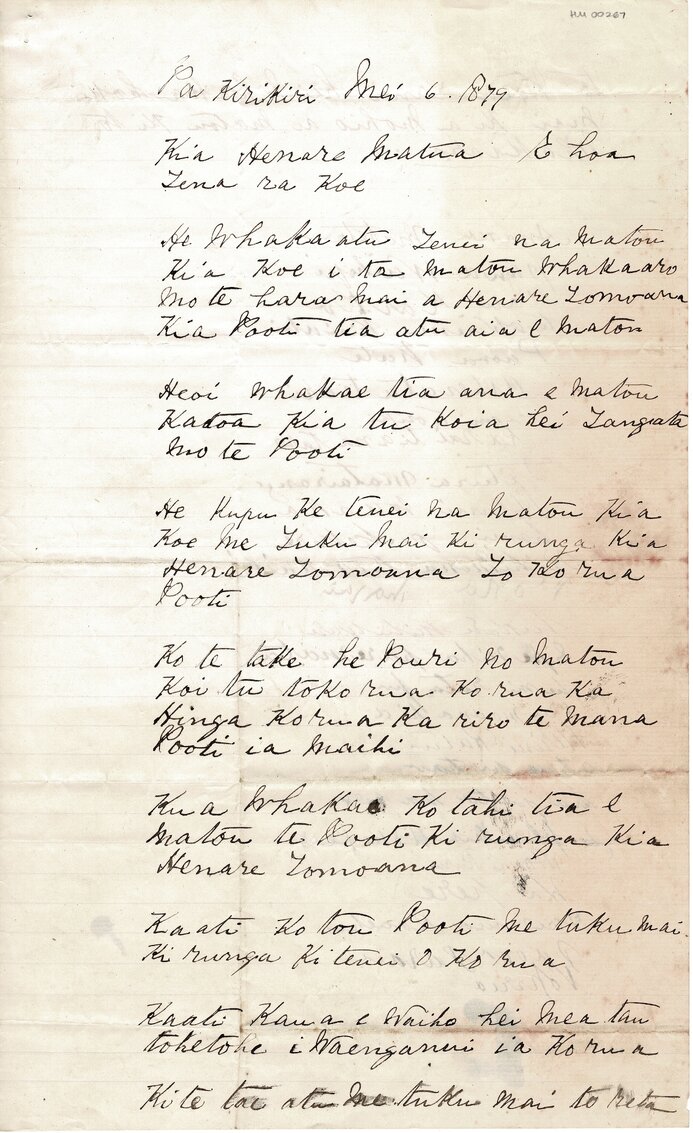 HM 00267
Pa Kirikiri Mei 6. 1879
Kia Henare Matua E hoa
Tena ra Koe
He Whakaatu Tenei na Matou
Kia Koe i ta Matou Whakaaro
Mo te hara Mai a Henare Tomoana
Kia Pooti tia atu aia e Matou
Heoi Whakae tia ana e Matou
Katoa Kia tu Koia hei Tangata
Mo te Pooti
He Kupu Ke tenei na Matou Kia
Koe Me Tuku Mai Ki runga Kia
Henare Tomoana To Korua
Pooti
Ko te take he Pouri no Matou
Koi tu tokorua Korua Ka
Hinga Korua Ka riro te Mana
Pooti ia Maihi
Kua Whakae Ko tahi tia e
Matou te Pooti Ki runga Kia
Henare Tomoana
Kaati Ko tou Pooti Me tuku Mai
Ki runga Ki tenei O Korua
Kaati Kaua e Waiho hei Mea tau
tohetohe i Waenganui ia Korua
Ki te tae atu Me tuku Mai to reta